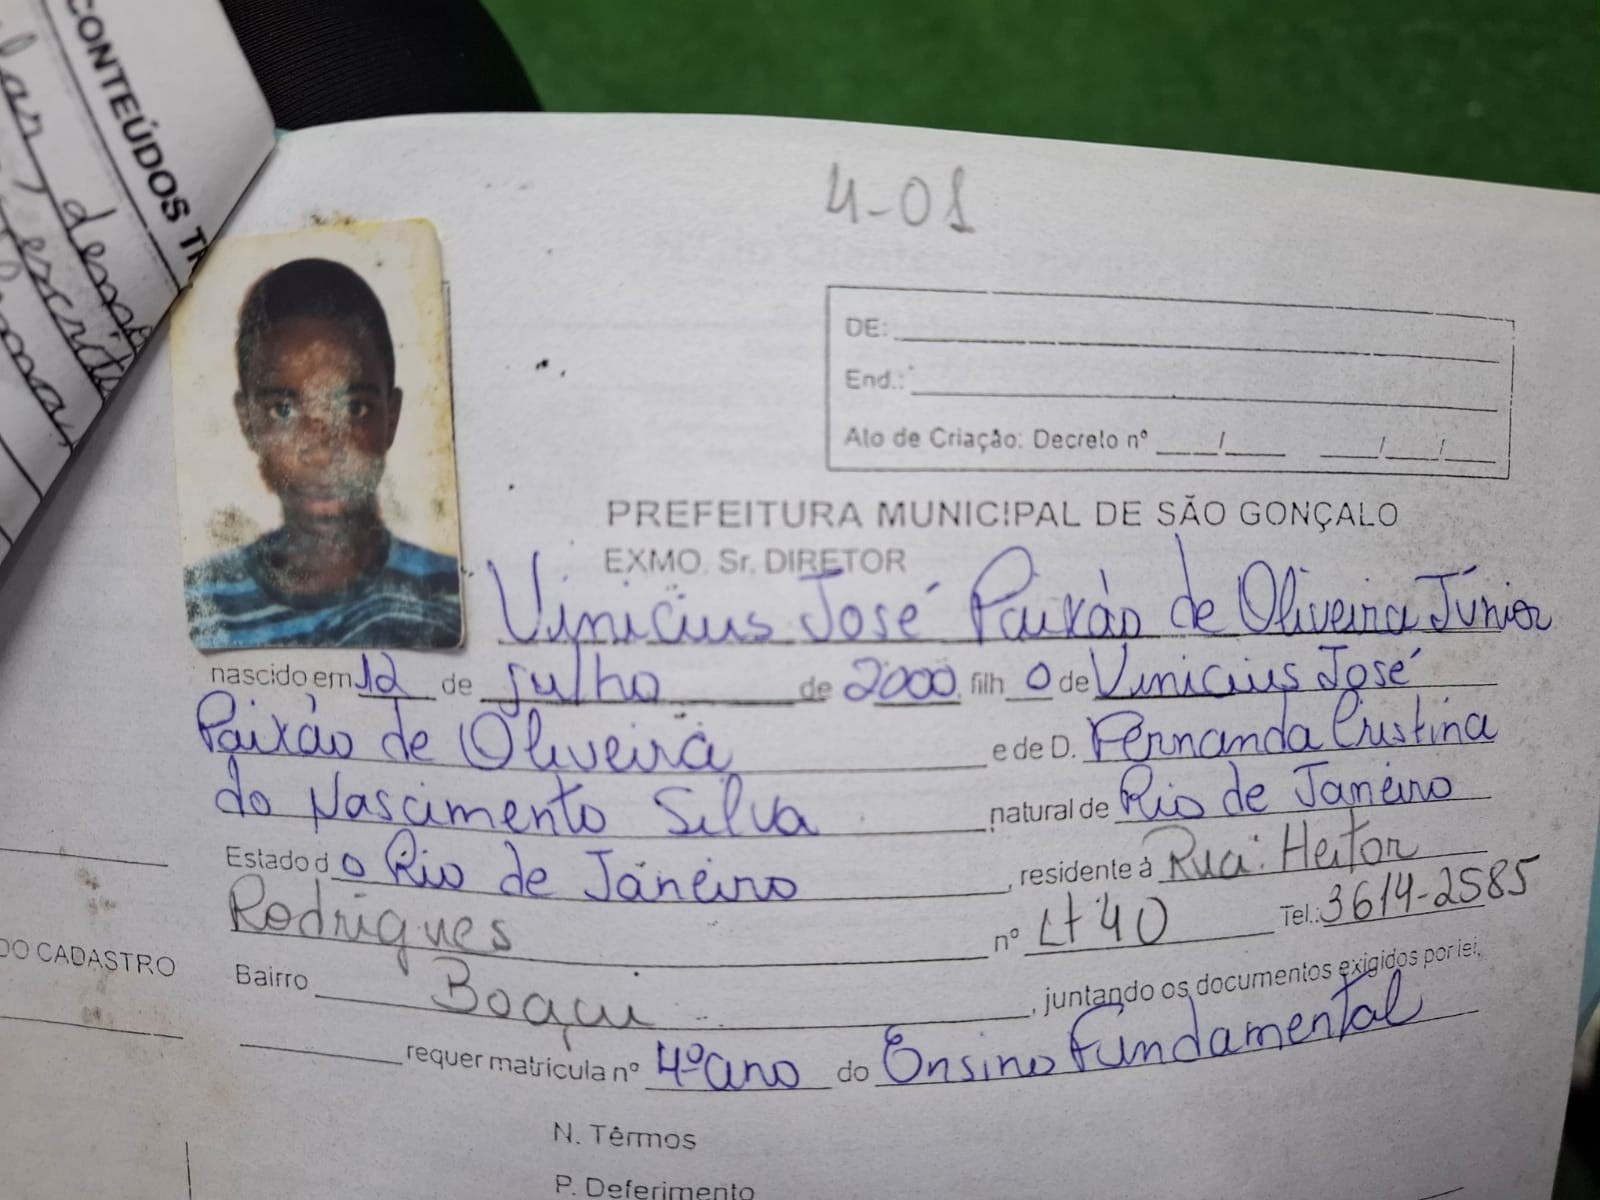 CONTEÚDOS TR
4-01
DE:
End.:
Ato de Criação: Decreto nº ___/___ ___/___/___
PREFEITURA MUNICIPAL DE SÃO GONÇALO
EXMO. Sr. DIRETOR
Vinicius José Paixão de Oliveira Júnior
nascido em 12 de julho de 2000, filh o de Vinicius José
Paixão de Oliveira e de D. Fernanda Cristina
do Nascimento Silva natural de Rio de Janeiro
Estado d o Rio de Janeiro, residente à Rua: Heitor
Rodrigues nº Lt 40 Tel.: 3614-2585
DO CADASTRO
Bairro Boaçu, juntando os documentos exigidos por lei,
requer matrícula nº 4º ano do Ensino Fundamental
N. Têrmos
P. Deferimento